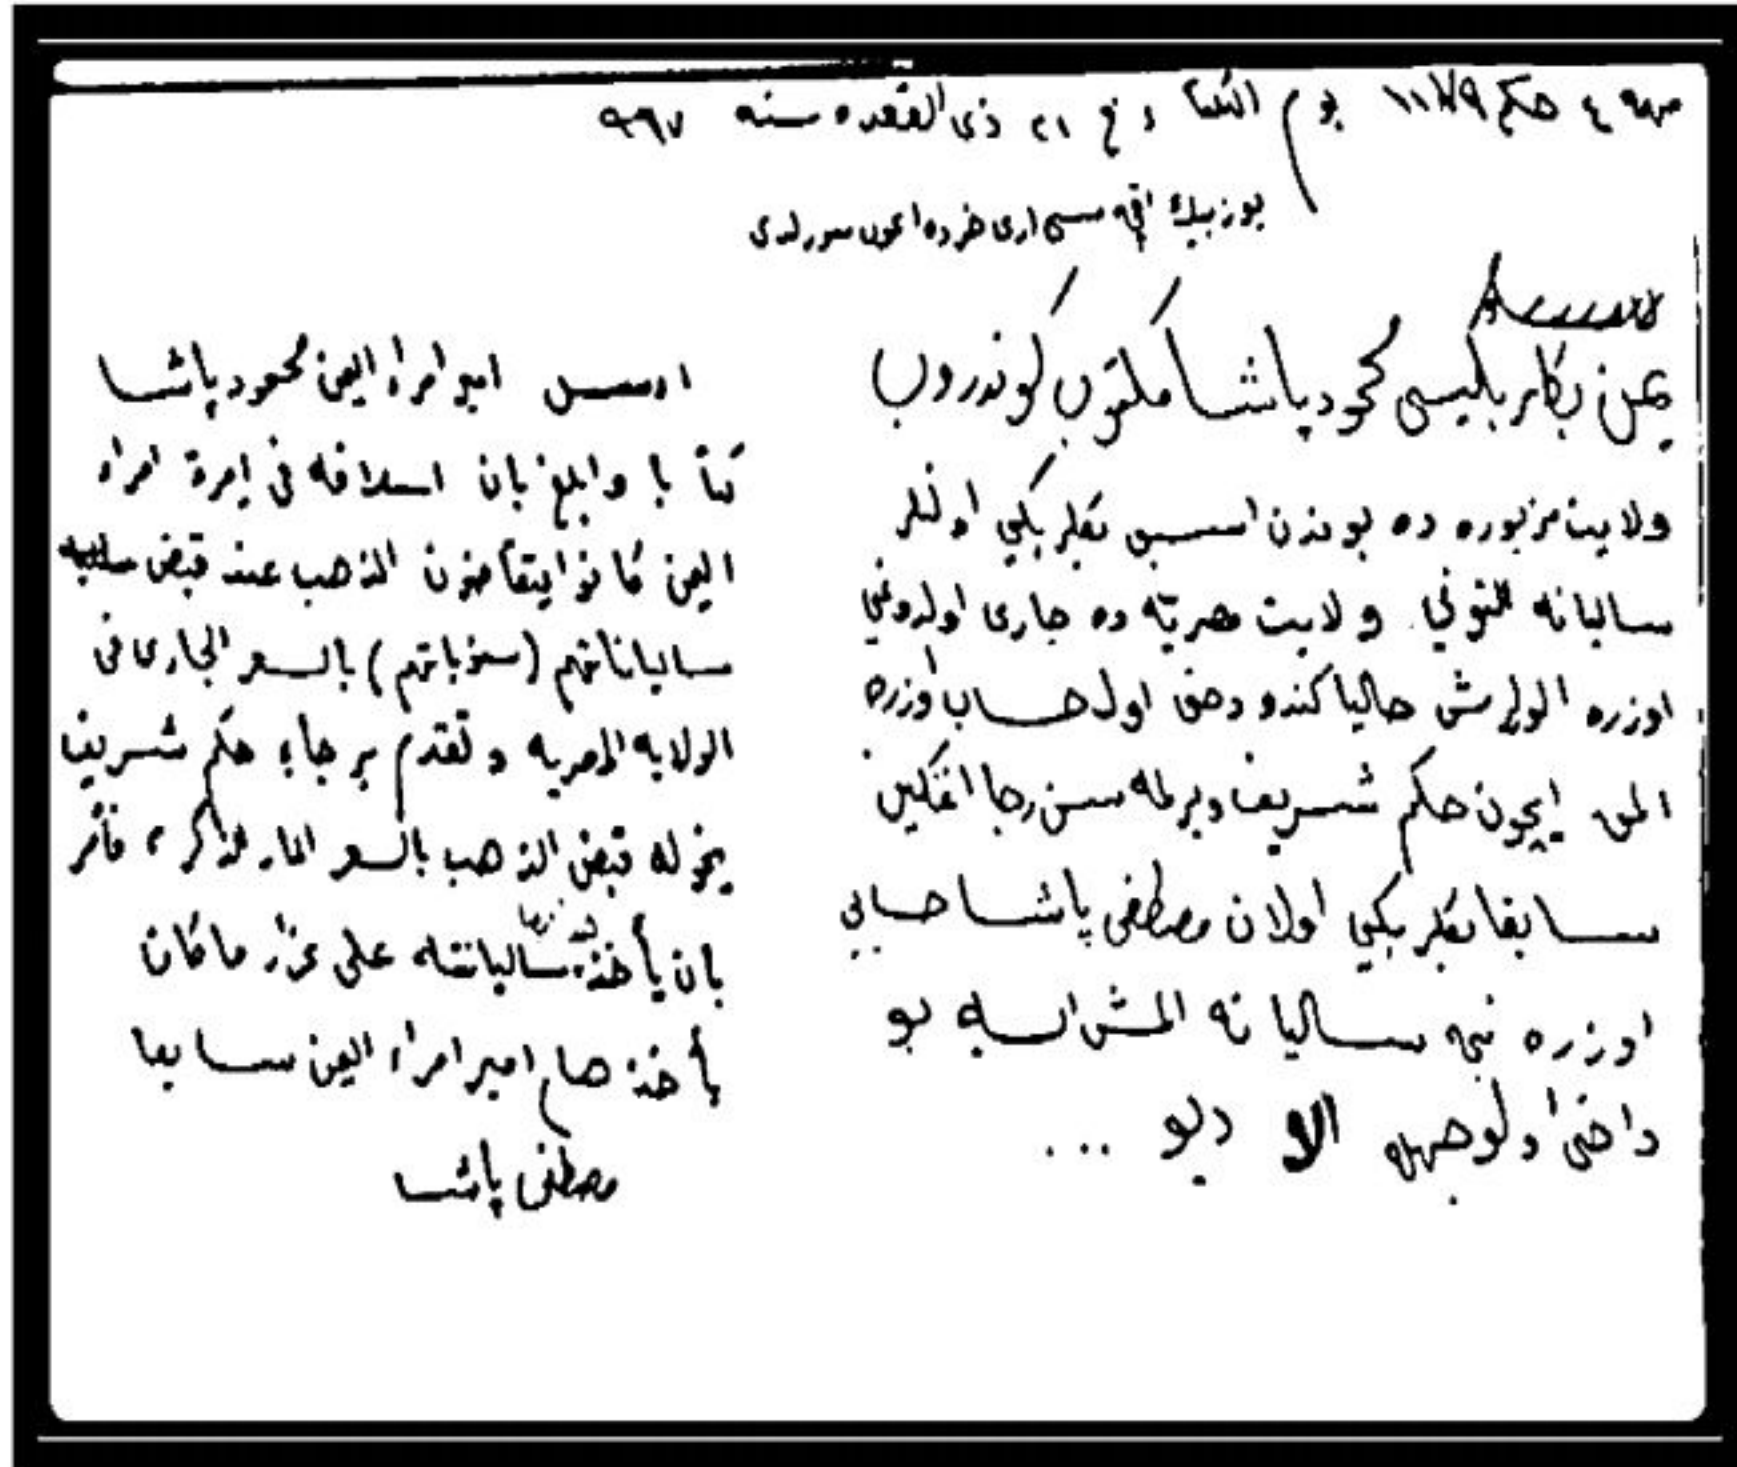 مهمه ٤ حكم يوم الثلثا في ٢١ ذى القعده سنه ٩٦٧
يوز بيك اقچه
يمن بكلربكيسى محمود پاشا مكتوب كوندروب
ولايت مزبوره ده بوندن اسبق بكلربكى اولنلر
ساليانه التونى ولايت مصريه ده جارى اولدوغى
اوزره الولمش حاليا كندو دخى اول حساب اوزره
المق ايچون حكم شريف ويرلمه سن رجا اتمكين
سابقا بكلربكى اولان مصطفى پاشا حسابى
اوزره نيجه ساليانه المش ايسه بو
داخى اولوجهله الا ديو ...
ارسل امير امراء اليمن محمود پاشا
كتابا وابلغ بان اسلافه فى إمرة امراء
اليمن كانوا يتقاضون الذهب عند قبض
سالياناتهم (سنوياتهم) بالسعر الجارى فى
الولايه المصريه وتقدم برجاء حكم شريف
يخوله قبض الذهب بالسعر المار الذكر ، فأمر
بان يأخذ ساليانته على غرار ما كان
يأخذها امير امراء اليمن سابقا
مصطفى پاشا